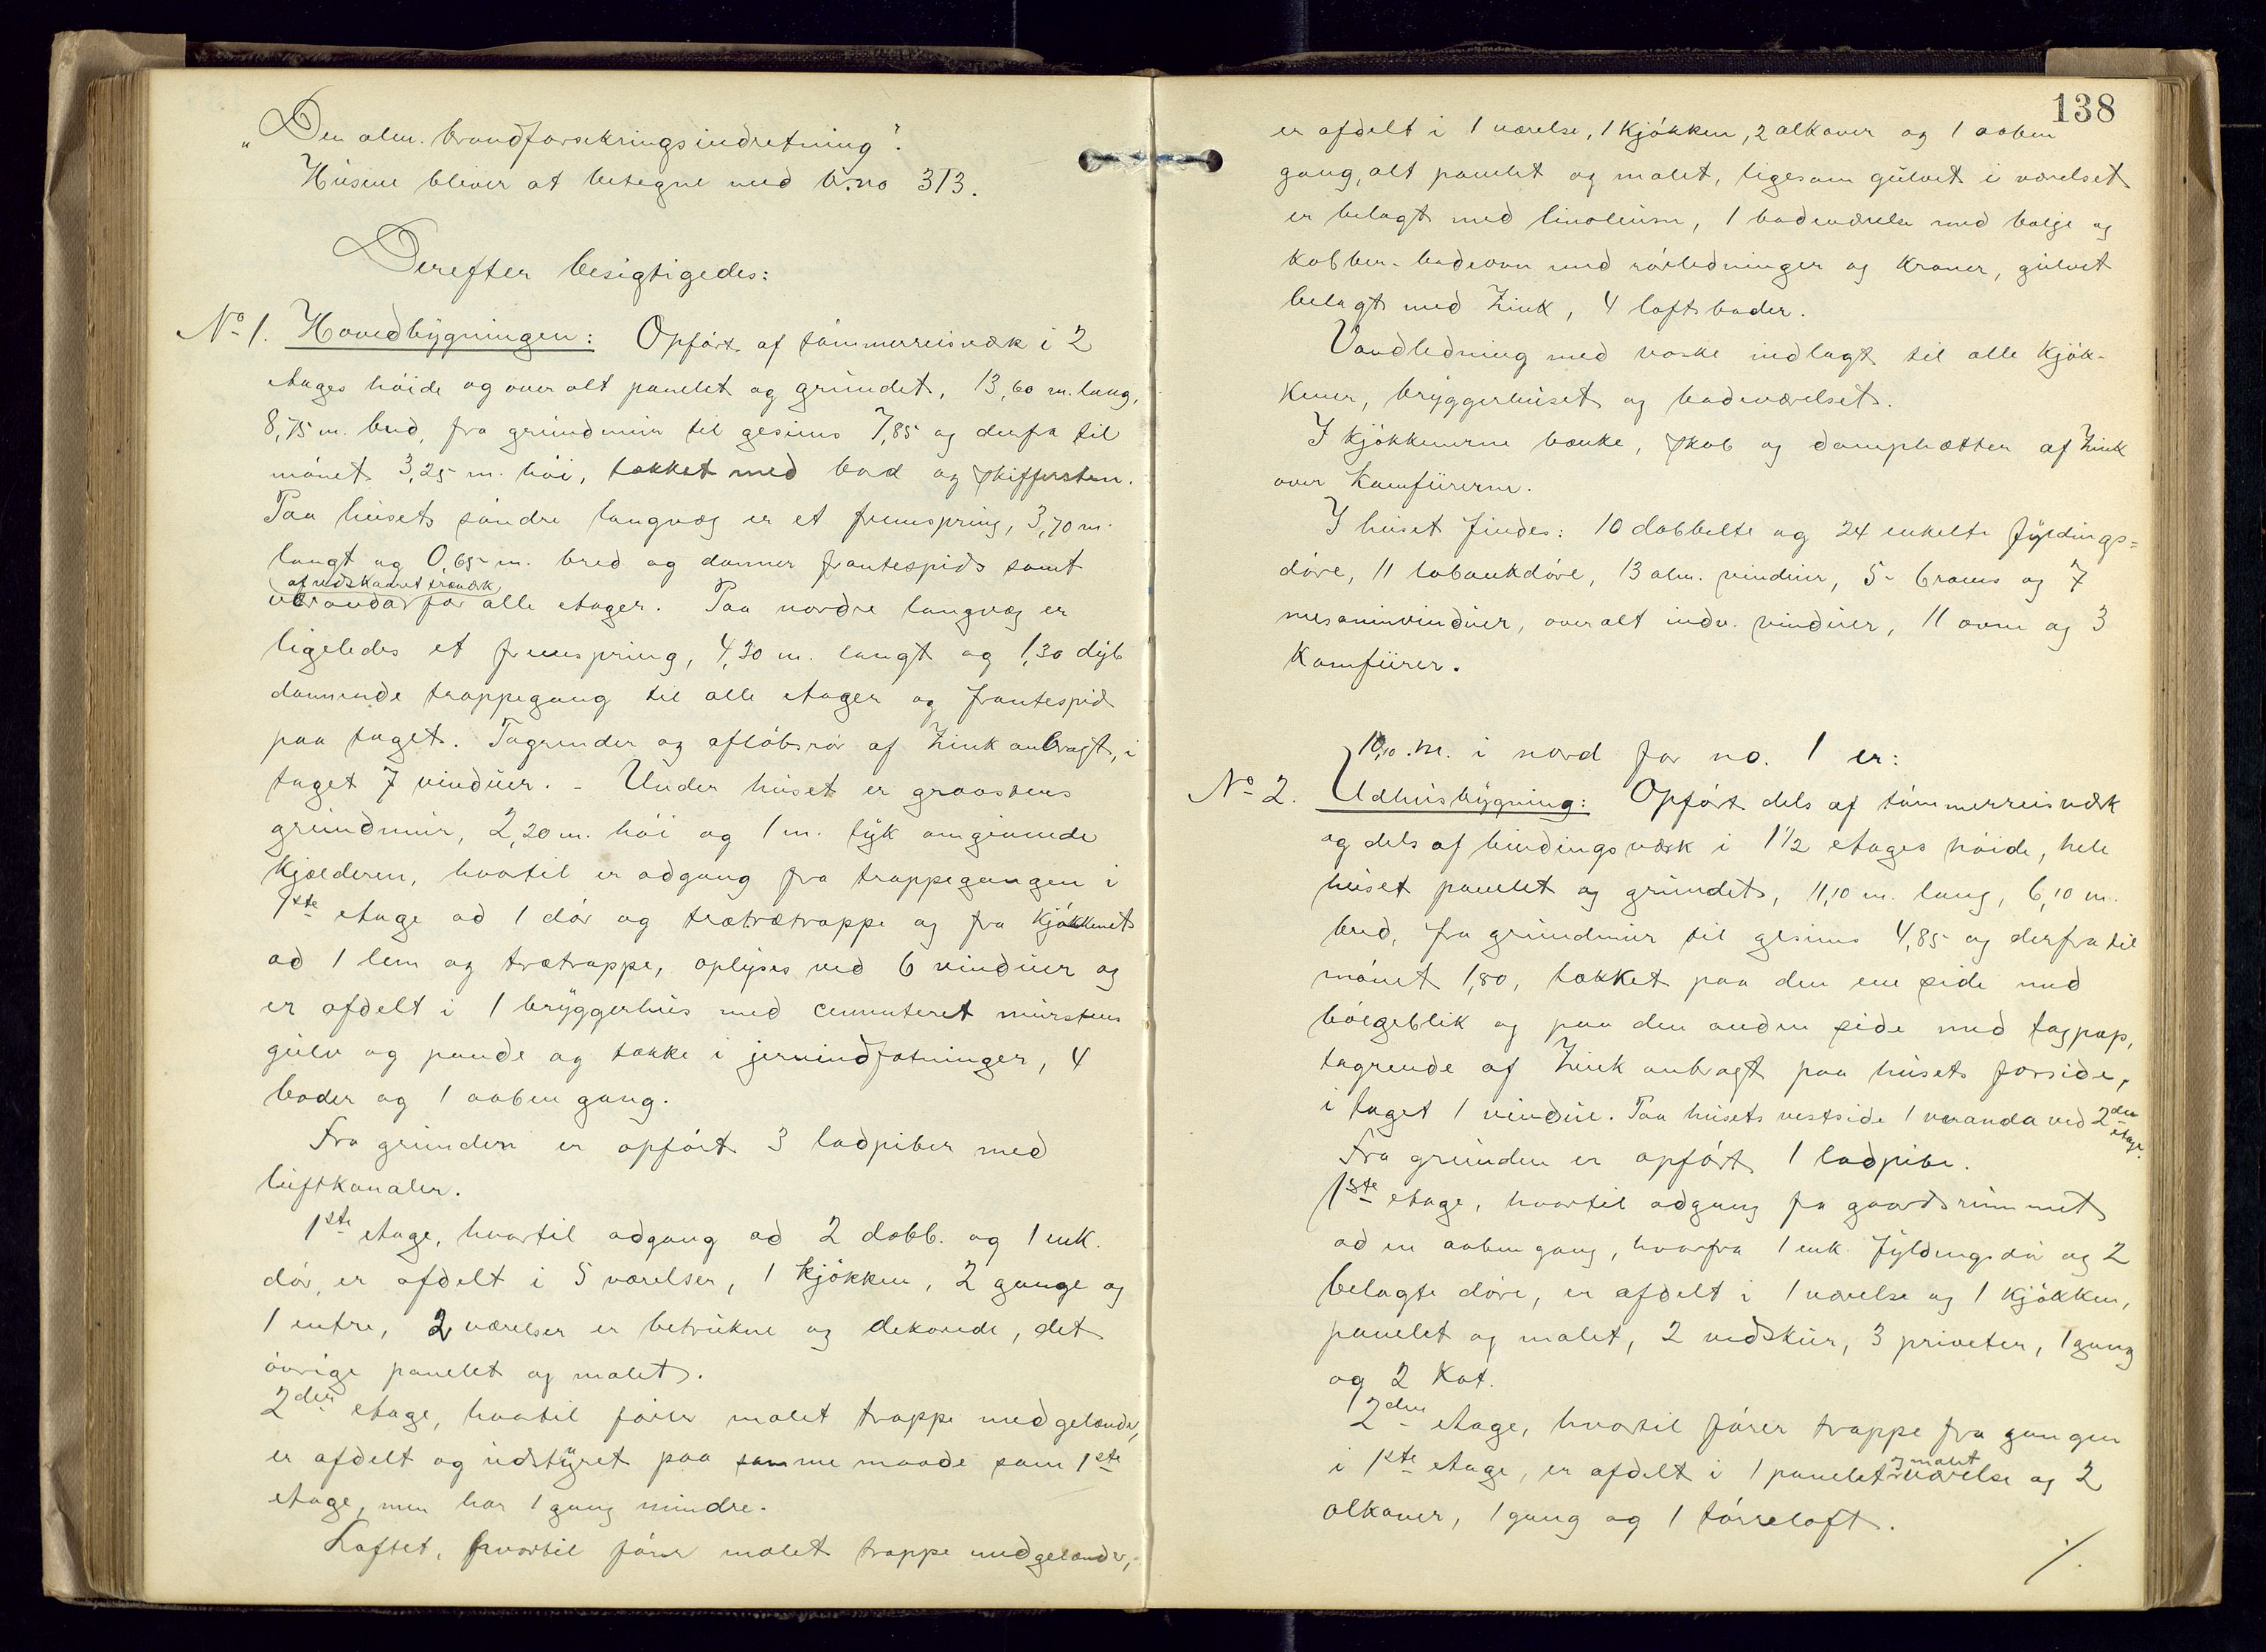 „Den alm. brandforsikringsindretning".
Husene bliver at betegne med br.no 313.
Derefter besigtigedes:
No 1. Hovedbygningen: Opført af tømmerreisværk i 2
etages høide og over alt panelet og grundet, 13,60 m. lang,
8,75 m. bred, fra grundmur til gesims 7,85 og derfra til
mønet 3,25 m. høi, tækket med bord og skiffersten.
Paa husets søndre langvæg er et fremspring, 3,70 m.
langt og 0,65 m. bred og danner frontespids samt
af udskaaret træværk
verandar for alle etager. Paa nordre langvæg er
ligeledes et fremspring, 4,30 m. langt og 1,30 dyb
dannende trappegang til alle etager og frontespid
paa taget. Tagrender og afløbsrør af Zink anbragt, i
taget 7 vinduer. - Under huset er graastens
grundmur, 2,20 m. høi og 1 m. tyk omgivende
kjælderen, hvortil er adgang fra trappegangen i
1ste etage ad 1 dør og trætrætrappe og fra kjøkkenet
ad 1 lem og trætrappe, oplyses ved 6 vinduer og
er afdelt i 1 bryggerhus med cementeret murstens
gulv og pande og takke i jernindfatninger, 4
boder og 1 aaben gang.
Fra grunden er opført 3 ladpiber med
luftkanaler.
1ste etage, hvortil adgang ad 2 dobb. og 1 enk.
dør, er afdelt i 5 værelser, 1 kjøkken, 2 gange og
1 entre, 2 værelser er betrukne og dekorede, det
øvrige panelet og malet.
2den etage, hvortil fører malet trappe med gelænder,
er afdelt og udstyret paa samme maade som 1ste
etage, men har 1 gang mindre.
Loftet, hvortil fører malet trappe med gelænder,
138
er afdelt i 1 værelse, 1 kjøkken, 2 alkover og 1 aaben
gang, alt panelet og malet, ligesom gulvet i værelset
er belagt med linoleum, 1 badeværelse med balje og
kobber-badeovn med rørledninger og kraner, gulvet
belagt med Zink, 4 loftsboder.
Vandledning med vaske indlagt til alle kjøk-
kener, bryggerhuset og badeværelset.
I kjøkkenerne bænke, skab og damphætter af Zink
over komfurerne.
I huset findes: 10 dobbelte og 24 enkelte fyldings-
døre, 11 labankdøre, 13 alm. vinduer, 5- 6rams og 7
mesaninvinduer, overalt indv. vinduer, 11 ovne og 3
komfurer.
10,10 m. i nord for no. 1 er:
No 2. Udhusbygning: Opført dels af tømmerreisværk
og dels af bindingsværk i 1 1/2 etages høide, hele
huset panelet og grundet, 11,10 m. lang, 6,10 m.
bred, fra grundmur til gesims 4,85 og derfra til
mønet 1,80, tækket paa den ene side med
bølgeblik og paa den anden side med tagpap,
tagrende af Zink anbragt paa husets forside,
i taget 1 vindue. Paa husets vestside 1 veranda ved 2den
etage.
Fra grunden er opført 1 ladpibe.
1ste etage, hvortil adgang fra gaardsrummet
ad en aaben gang, hvorfra 1 enk. fyldingsdør og 2
belagte døre, er afdelt i 1 værelse og 1 kjøkken,
panelet og malet, 2 vedskur, 3 priveter, 1 gang
og 2 kot.
2den etage, hvortil fører trappe fra gangen
og malet
i 1ste etage, er afdelt i 1 panelet værelse og 2
alkover, 1 gang og 1 tørreloft.
./.